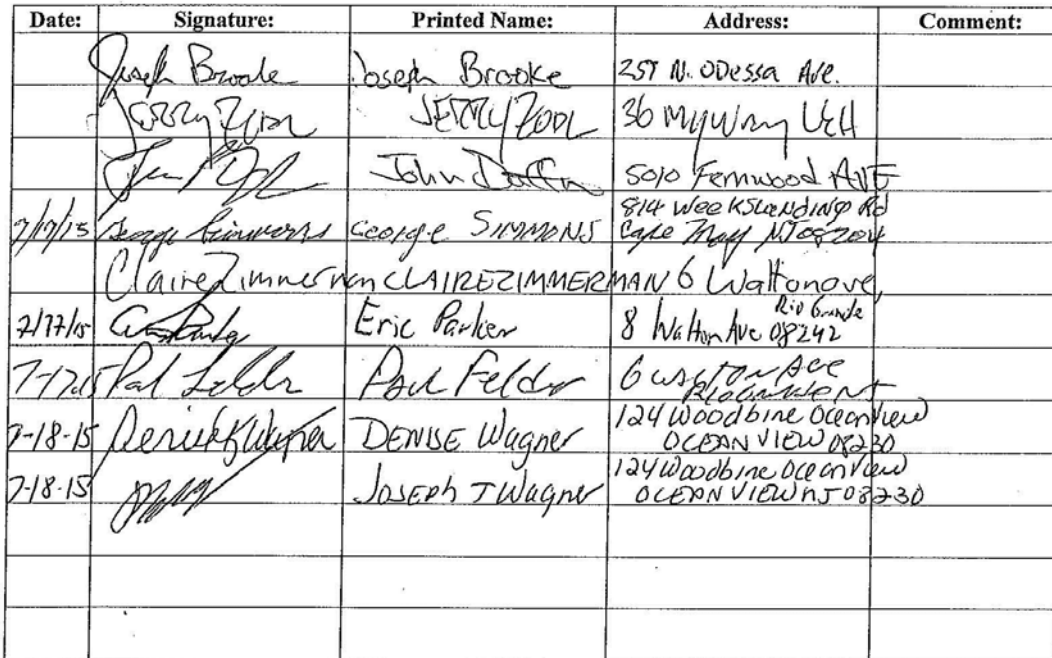 Date: Signature: Printed Name: Address: Comment:
Joseph Brooke Joseph Brooke 257 N. Odessa Ave.
JERRY ZODL JERRY ZODL 36 My Way LEH
John 5010 Fernwood AVE
7/17/15 George Simmons George SIMMONS 814 WeekSLANDING Rd
Cape May NJ 08204
Claire Zimmerman CLAIRE ZIMMERMAN 6 Walton ave,
7/17/15 Eric Parker 8 Walton Ave 08242
Rio Grande
7-17-15 Paul Felder 6 Walton Ave
7-18-15 Denise Wagner DENISE Wagner 124 Woodbine Ocean View
OCEAN VIEW 08230
7-18-15 JOSEPH T Wagner 124 Woodbine Ocean View
OCEAN VIEW NJ 08230